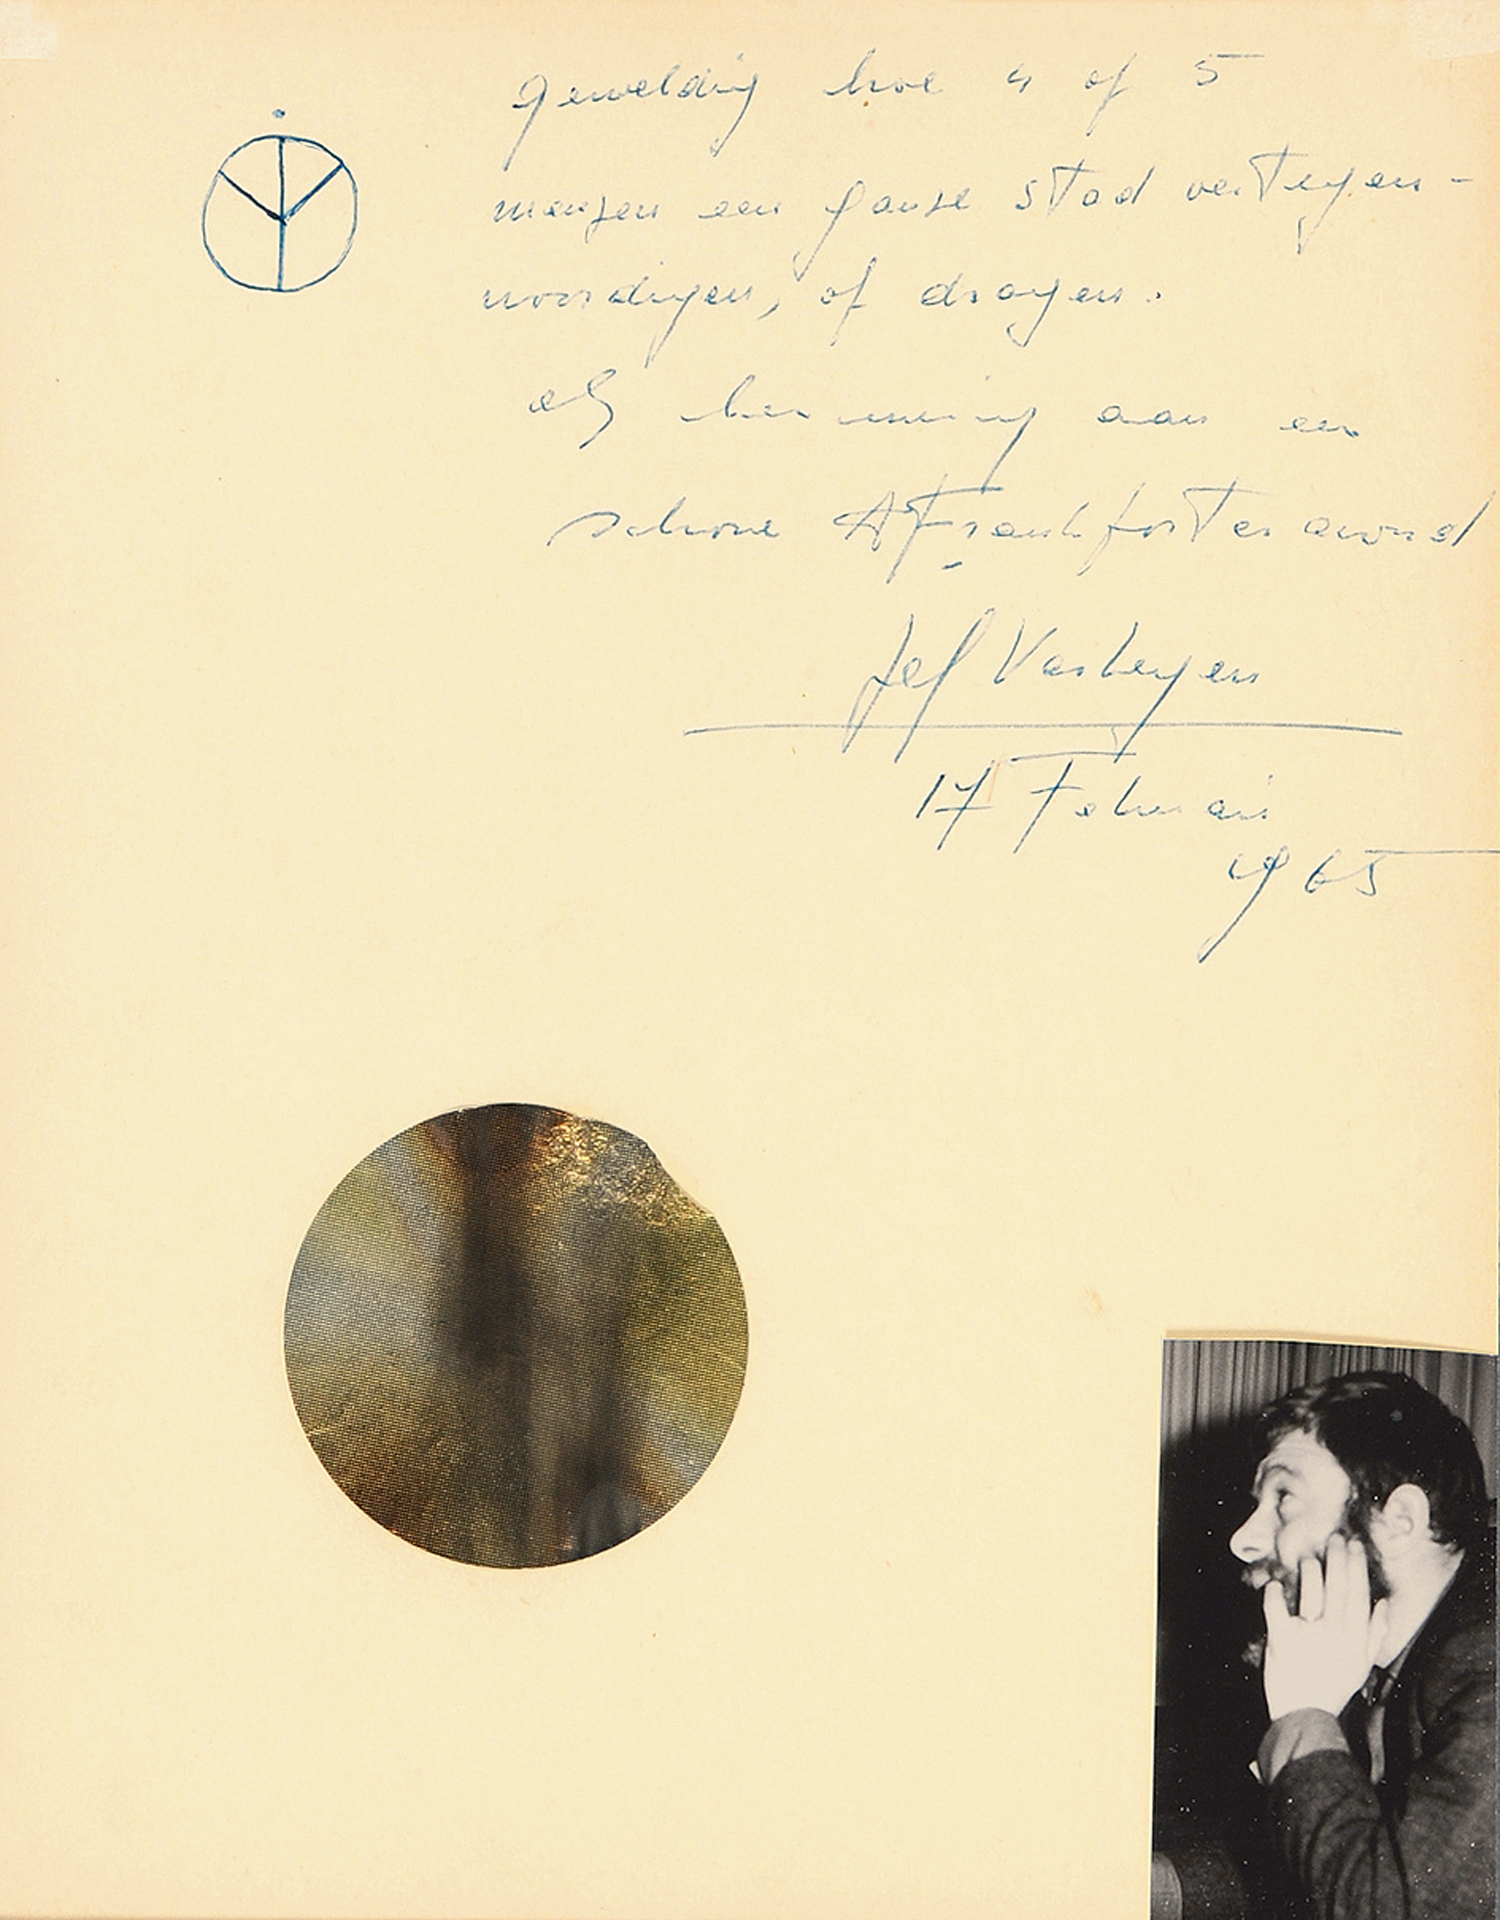 geweldig hoe 4 of 5
mensen een ganse stad vertegen-
woordigen, of dragen.
als herinnering aan een
schone Frankforter avond
Jef Verheyen
17 Februari
1965